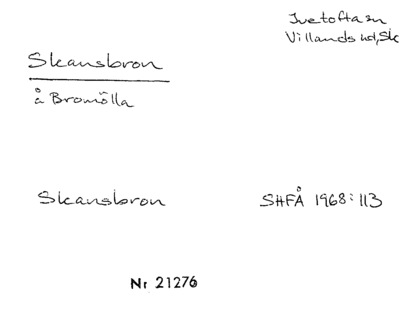 Ivetofta sn
Villands hd, Sk
Skansbron
å Bromölla
Skansbron
SHFÅ 1968:113
Nr 21276